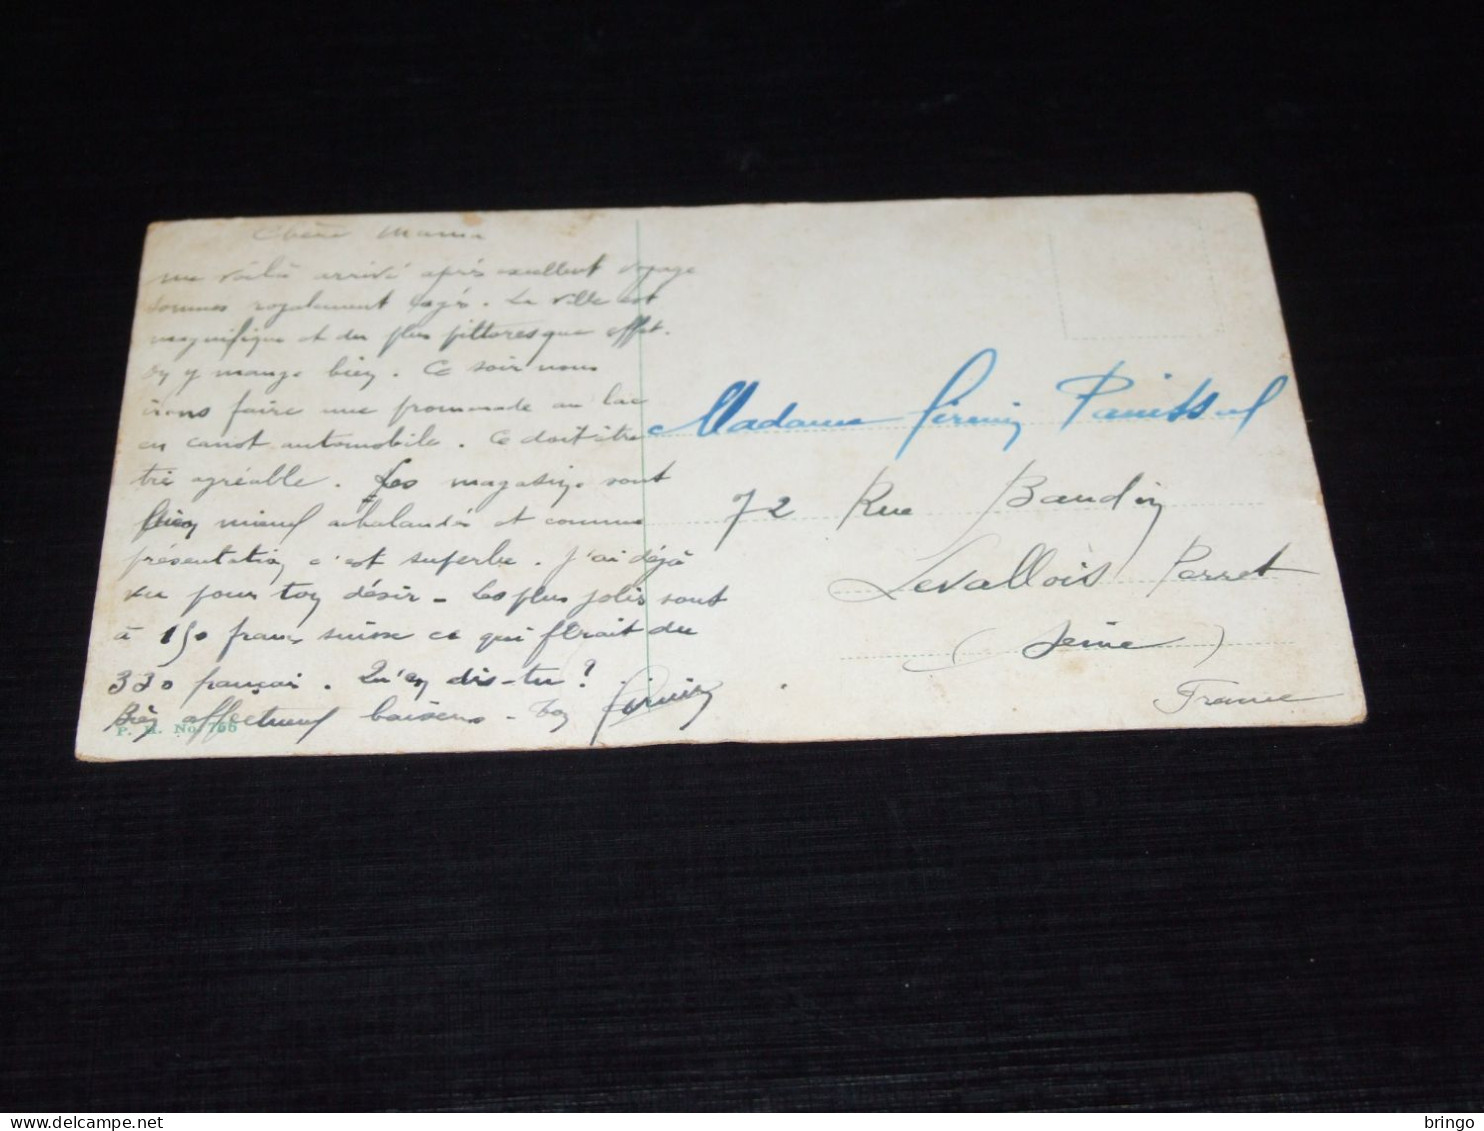 Chère Mama
me voilà arrivé après excellent voyage
sommes royalement logés. La ville est
magnifique et du plus pittoresque effet.
On y mange bien. Ce soir nous
irons faire une promenade au lac
en canot automobile. Ce doit être
très agréable. Les magasins sont
bien mieux achalandés et comme
présentation c'est superbe. J'ai déjà
vu pour ton désir - Les plus jolis sont
à 150 francs suisse ce qui ferait du
330 français. Qu'en dis-tu?
Bien affectueux baisers - Ton Firmin
P. H. No. 766
Madame Firmin
72 Rue Baudin
Levallois Perret
(Seine)
France
bringo